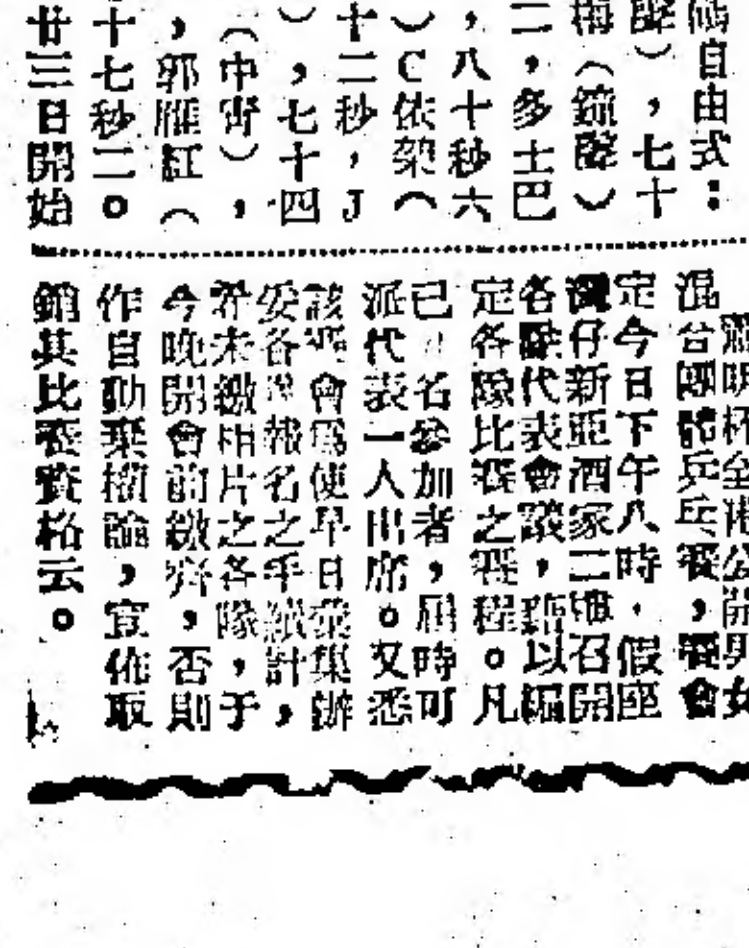 自由式：
），七十
梅（鐘聲）
二，多士巴
，八十秒六
）C依架（
十二秒，J
），七十四
（中寄），
，郭雁紅（
十七秒二。
廿三日開始
明杯全港公開男女
混合團體乒乓賽，賽會
定今日下午八時，假座
灣仔新亞酒家二樓召開
各隊代表會議，藉以編
定各隊比賽之賽程。凡
已名參加者，屆時可
派代表一人出席。又悉
該會爲使早日彙集辦
妥各報名之手續計，
若未繳相片之各隊，于
今晚開會前繳齊，否則
作自動棄權論，宣佈取
銷其比賽資格云。